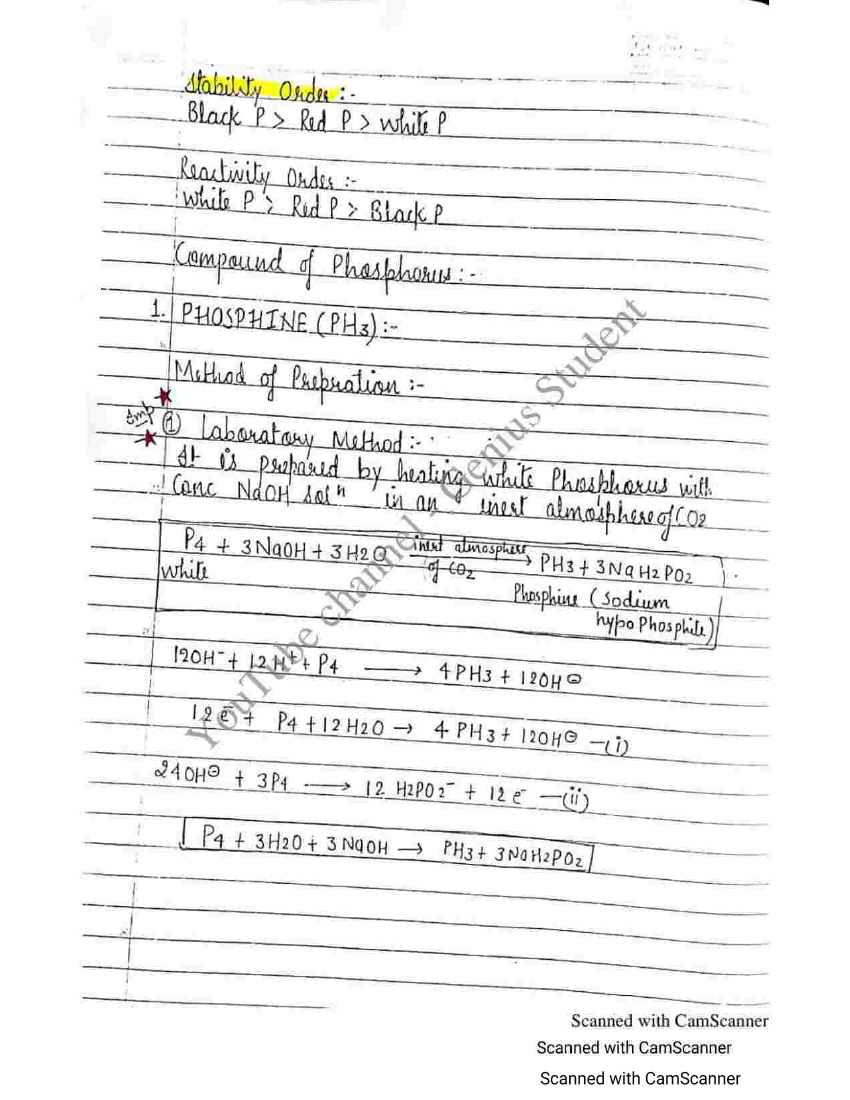 Stability Order :-
Black P > Red P > White P
Reactivity Order :-
White P > Red P > Black P
Compound of Phosphorus :-
1. PHOSPHINE (PH3) :-
Method of Prepration :-
Imp ① Laboratory Method :-
It is prepared by heating white Phosphorus with
Conc NaOH solⁿ in an inert atmosphere of CO2
P4 + 3NaOH + 3H2O inert atmosphere of CO2 → PH3 + 3NaH2PO2
white
Phosphine (Sodium
hypoPhosphite)
12OH⁻ + 12H⁺ + P4 → 4PH3 + 12OH⊖
12e⁻ + P4 + 12H2O → 4PH3 + 12OH⊖ —(i)
24OH⊖ + 3P4 → 12 H2PO2⁻ + 12e⁻ —(ii)
P4 + 3H2O + 3NaOH → PH3 + 3NaH2PO2
YouTube channel - Genius Student
Scanned with CamScanner
Scanned with CamScanner
Scanned with CamScanner